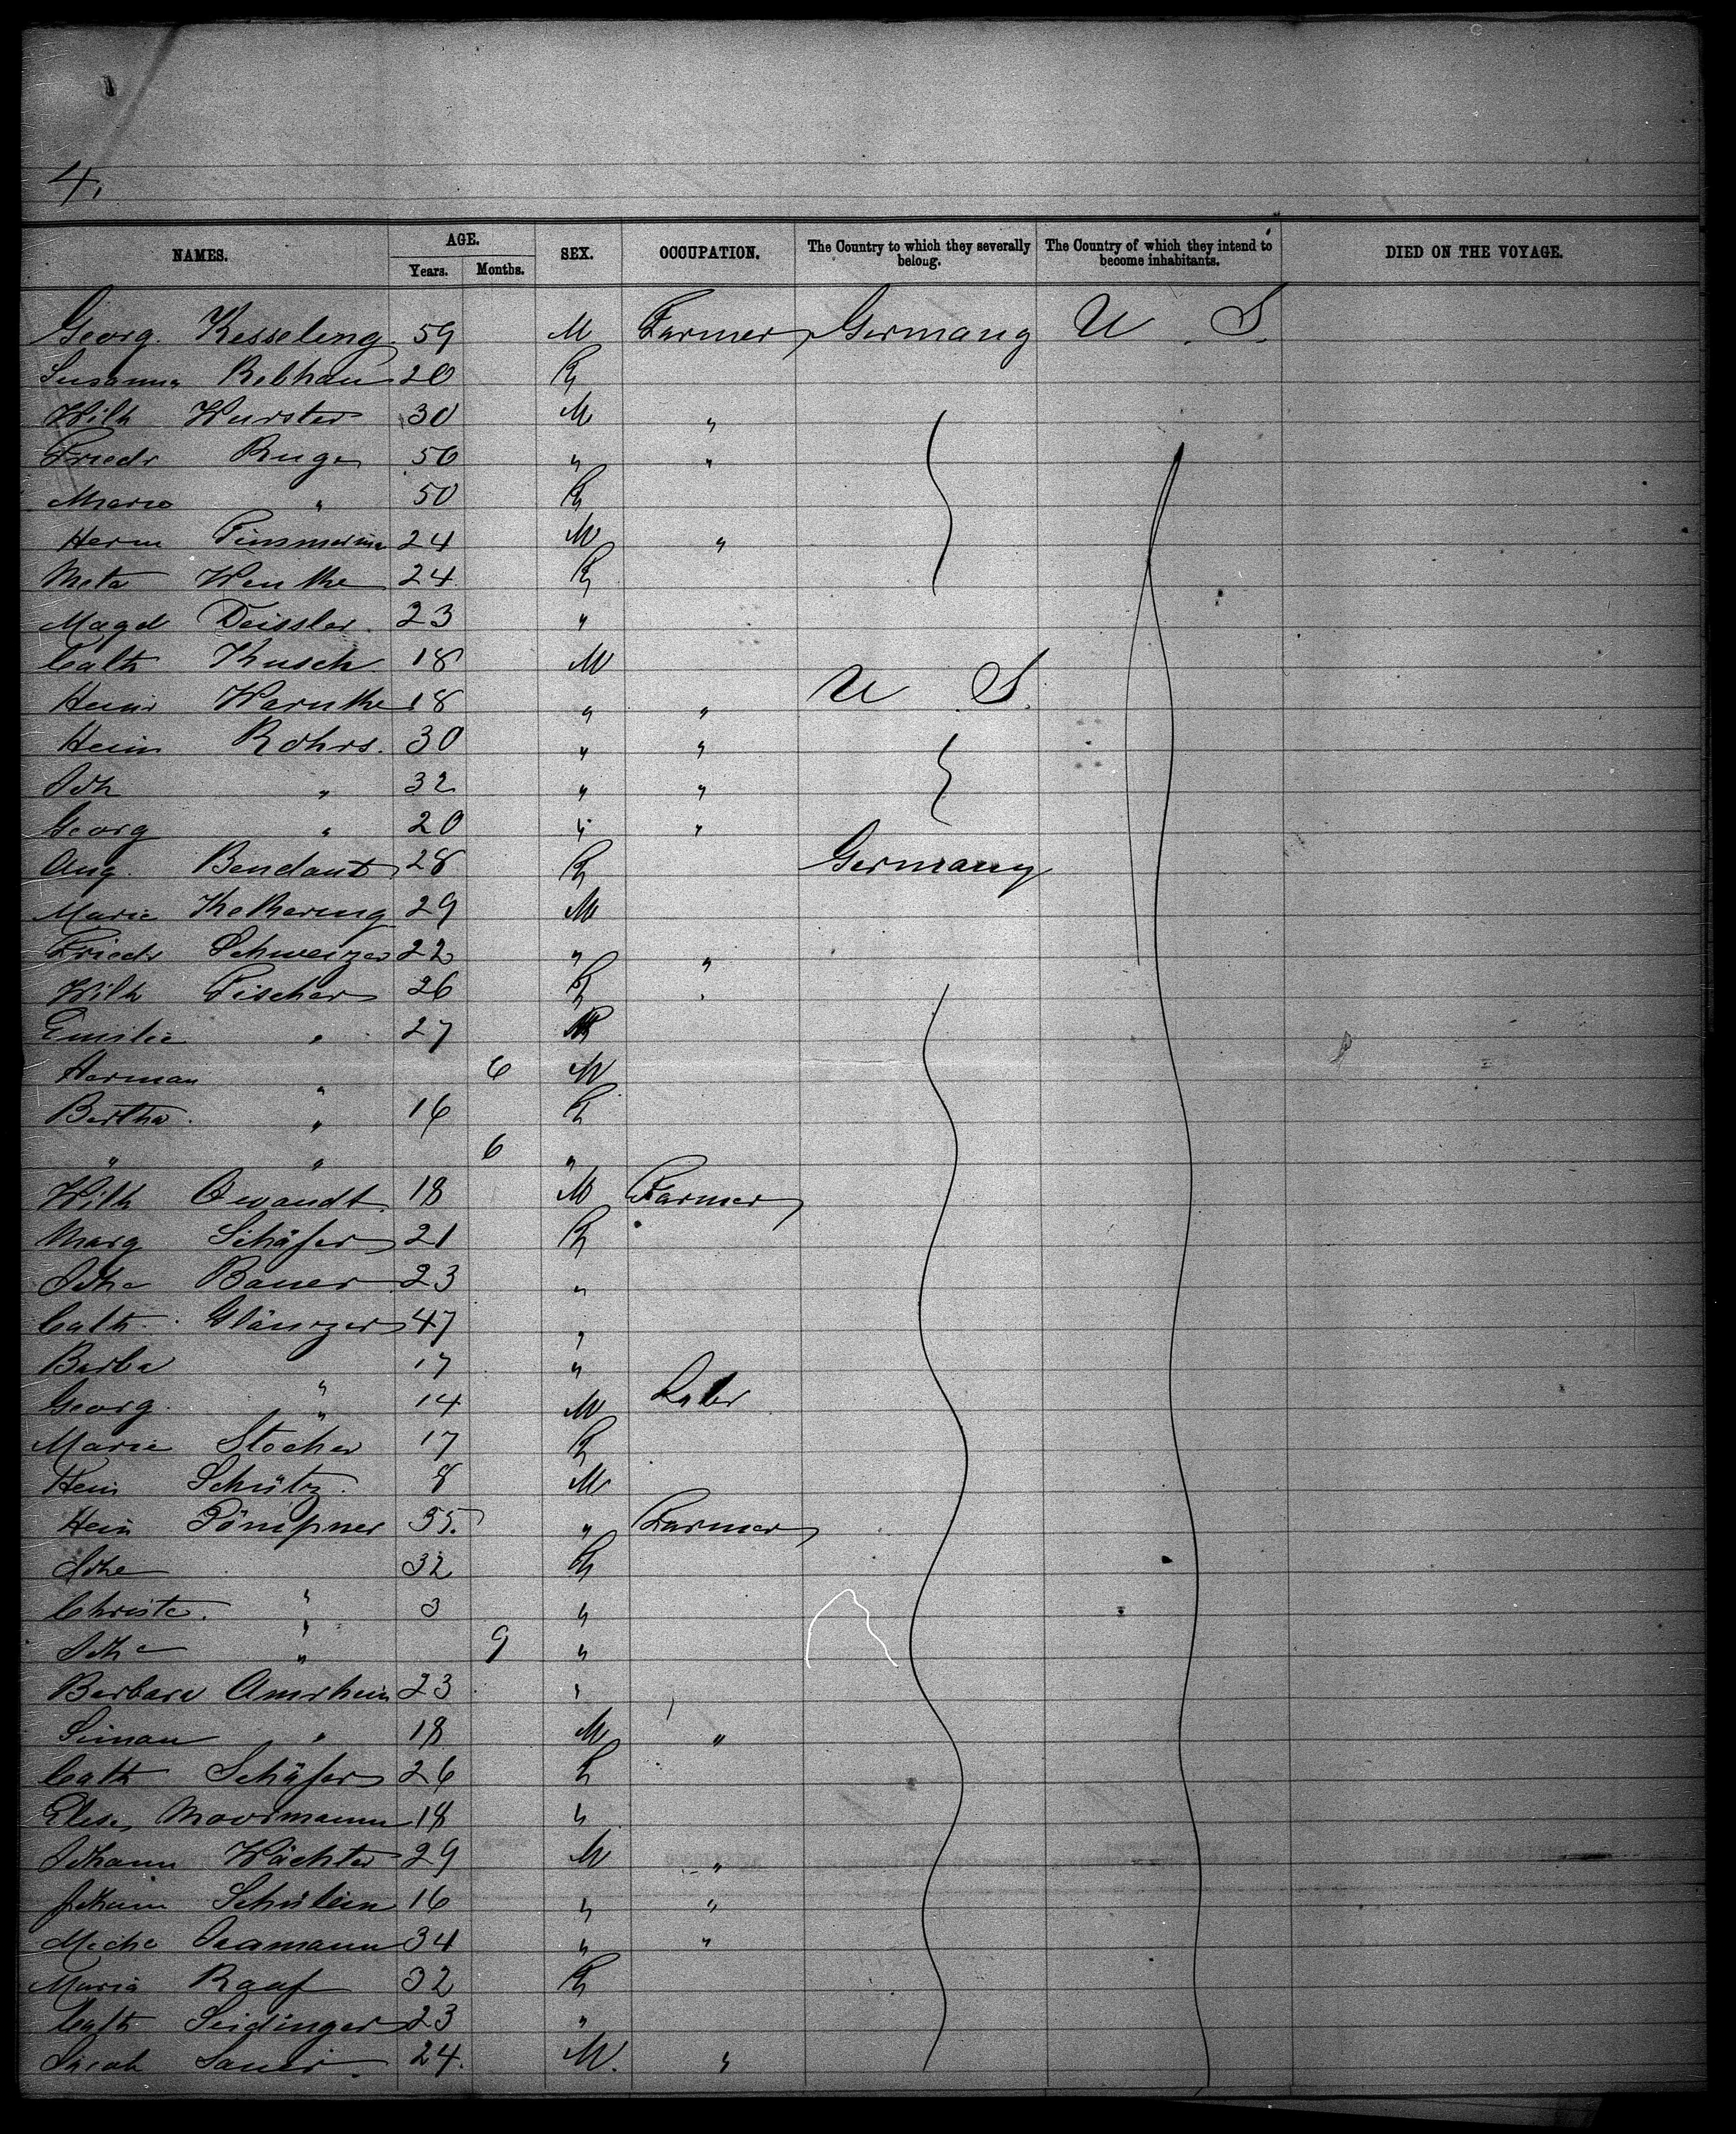 4.
NAMES. AGE. Years. Months. SEX. OCCUPATION. The Country to which they severally belong. The Country of which they intend to become inhabitants. DIED ON THE VOYAGE.
Georg. Kesseling 59 M Farmer Germany U. S.
Susanna Rebhan 20
Wilh Wurster 30 M "
Friedr Ruge 50 " "
Marie " 50
Herm 24 M "
Meta Wenthe 24
Magd Deissler 23 "
Cath Kusch 18 M
U. S.
Heinr Warnthe 18 " "
Hein Rohrs. 30 " "
Joh " 32 " "
Georg " 20 " "
Aug. Bendant 28 Germany
Marie Kethering 29 M
Friedr Schweizer 22 " "
Wilh Fischer 26 "
Emilie " 27
Herman " 6 M
Bertha " 16
" " 6 "
Wilh 18 M Farmer
Marg Schäfer 21
Johe Bauer 23 "
Cath. Glänzer 47 "
Barba " 17 "
Georg. " 14 M
Marie Stocher 17
Hein Schütz. 8 M
Hein 35. " Farmer
Johe 32
Christe. " 3 "
Johe " 9 "
Barbara Amrhein 23 "
Siman " 18 M "
Cath Schäfer 26
Elise Moormann 18 "
Johann Wächter 29 M "
Johann Schülein 16 " "
Miche 34 " "
Maria Raaf 32
Cath Seidinger 23 "
Jacob Sauer 24. M. "